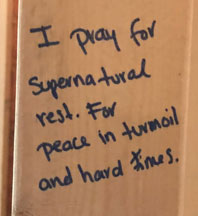 I pray for
supernatural
rest. For
peace in turmoil
and hard times.